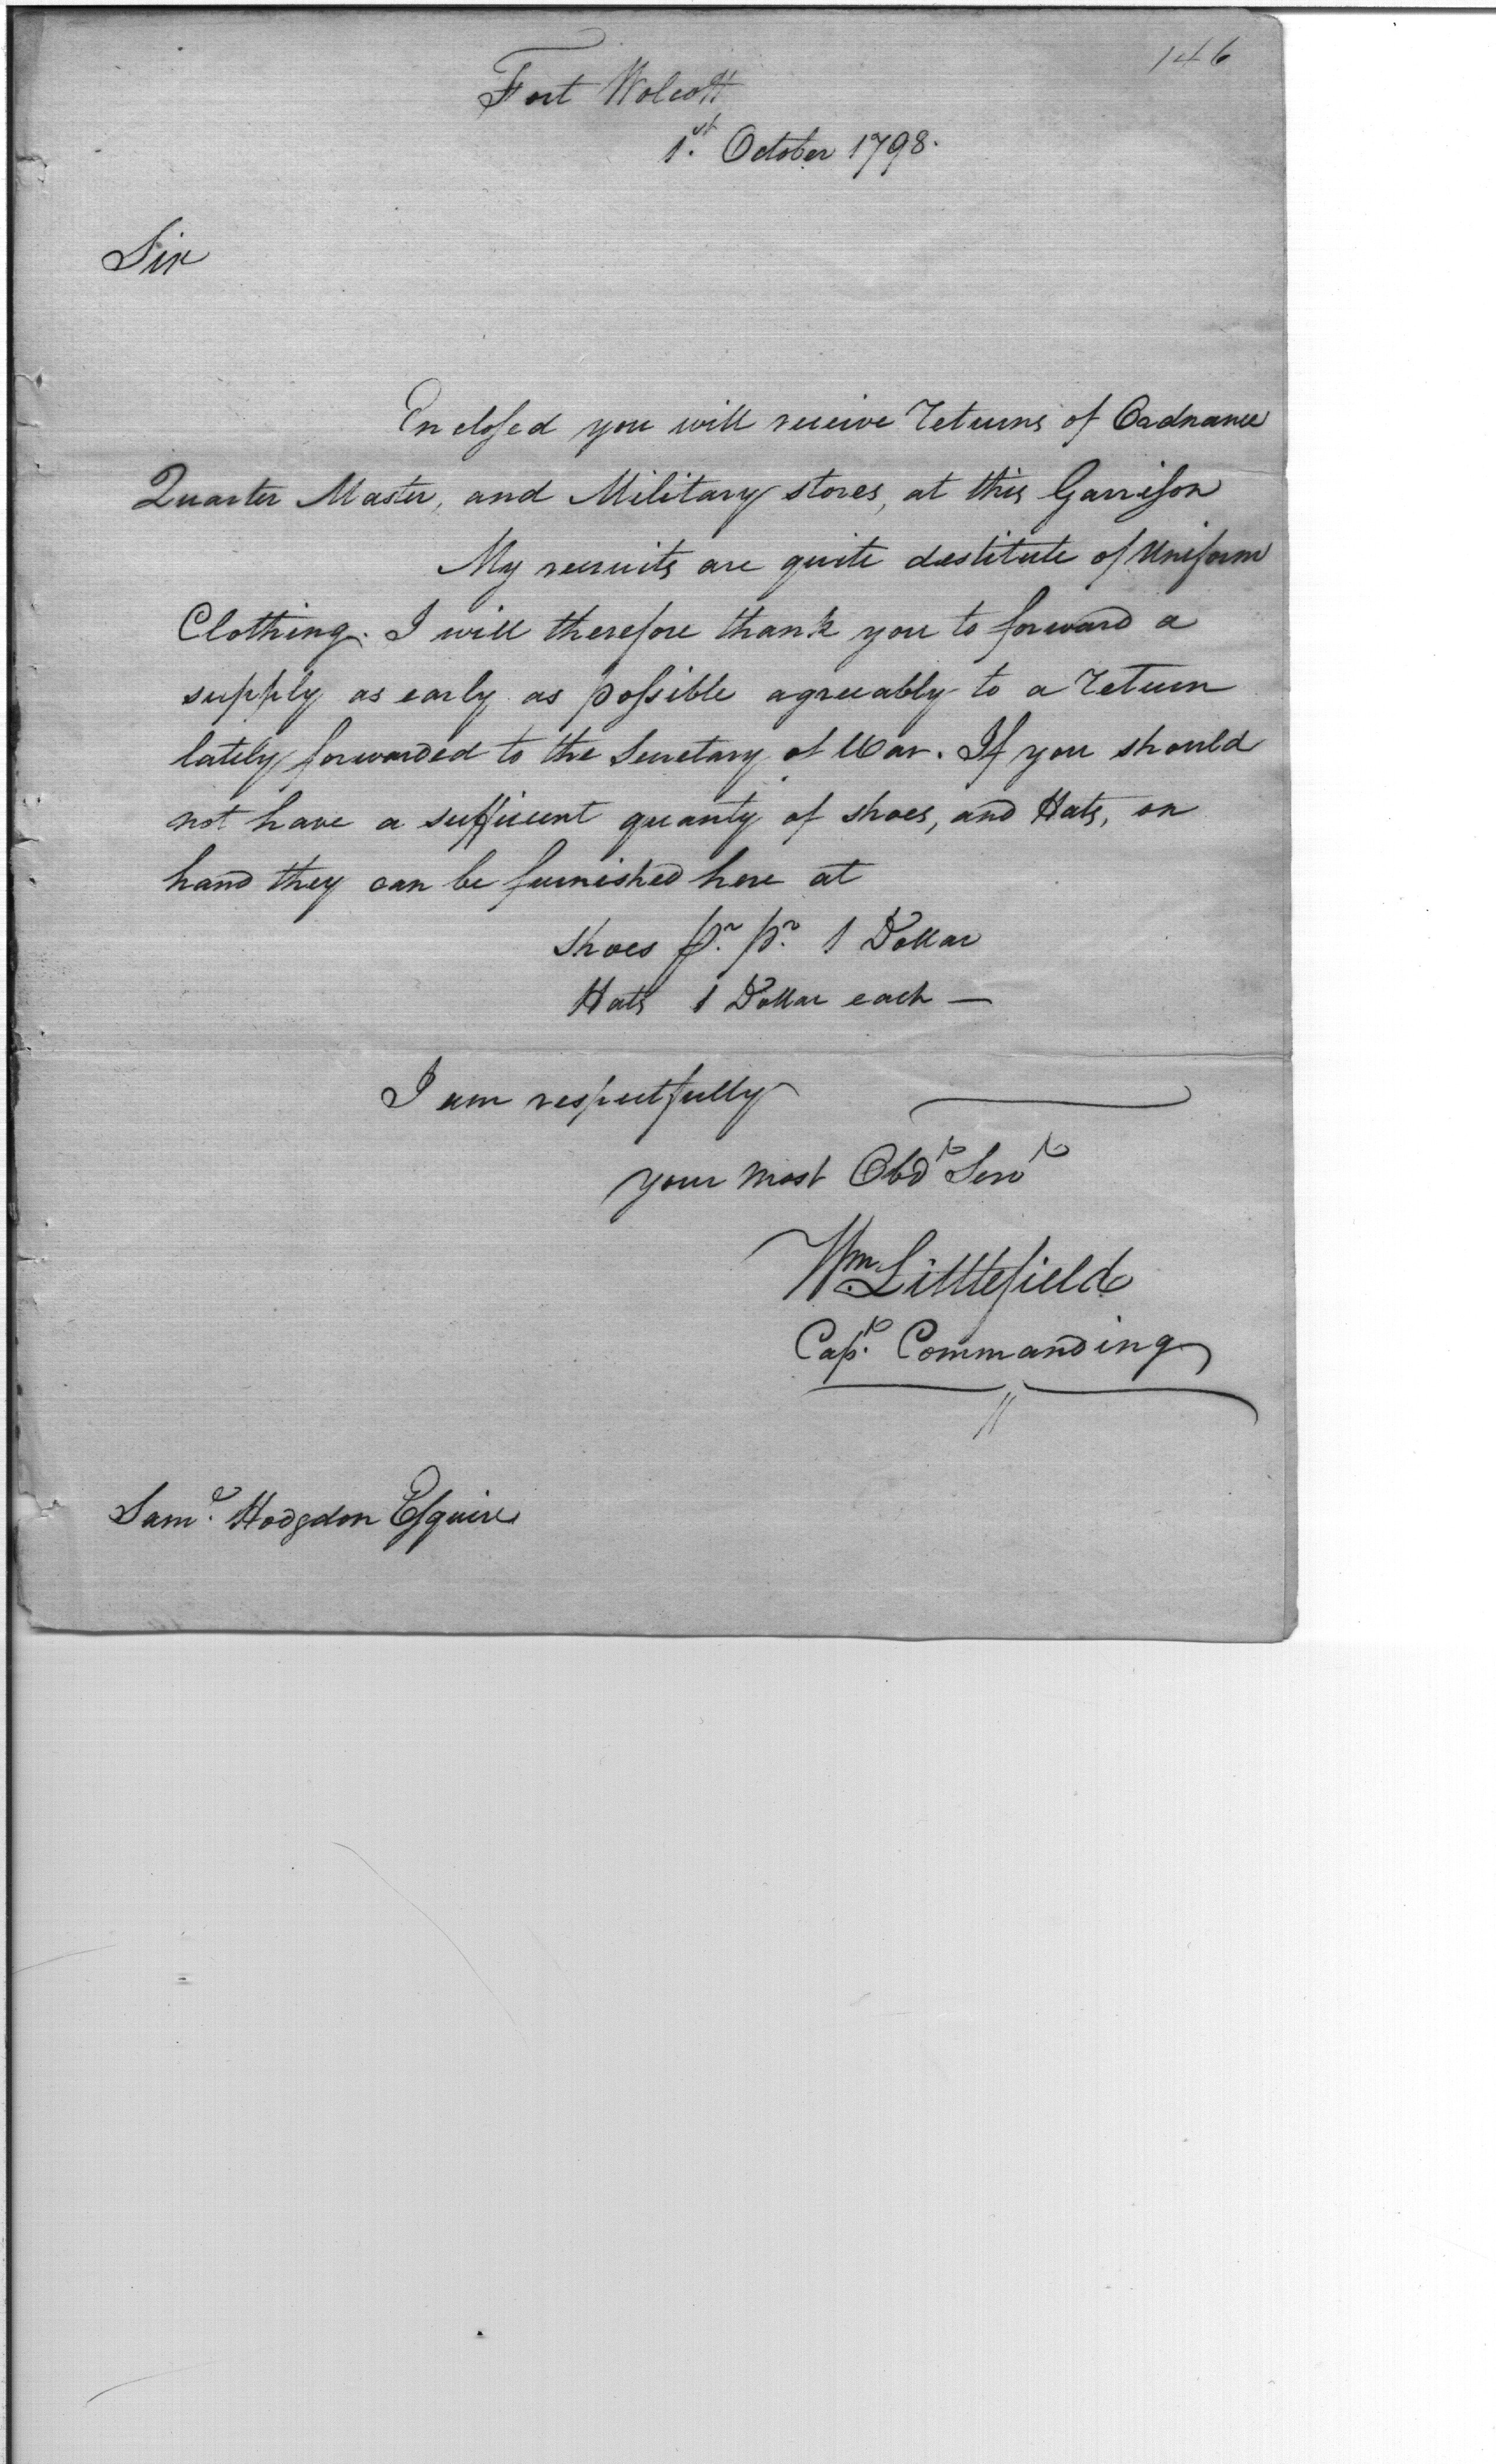 146
Fort Wolcott
1st. October 1798.
Sir
Enclosed you will receive Returns of Ordnance
Quarter Master, and Military stores, at this Garrison
My recruits are quite destitute of Uniform
Clothing. I will therefore thank you to forward a
supply as early as possible agreeably to a Return
lately forwarded to the Secretary of War. If you should
not have a sufficient quanty of shoes, and Hats, on
hand they can be furnished here at
Shoes pr. pr. 1 Dollar
Hats 1 Dollar each —
I am respectfully
your most Obdt Servt
Wm. Littlefield
Capt. Commanding
Saml. Hodgdon Esquire